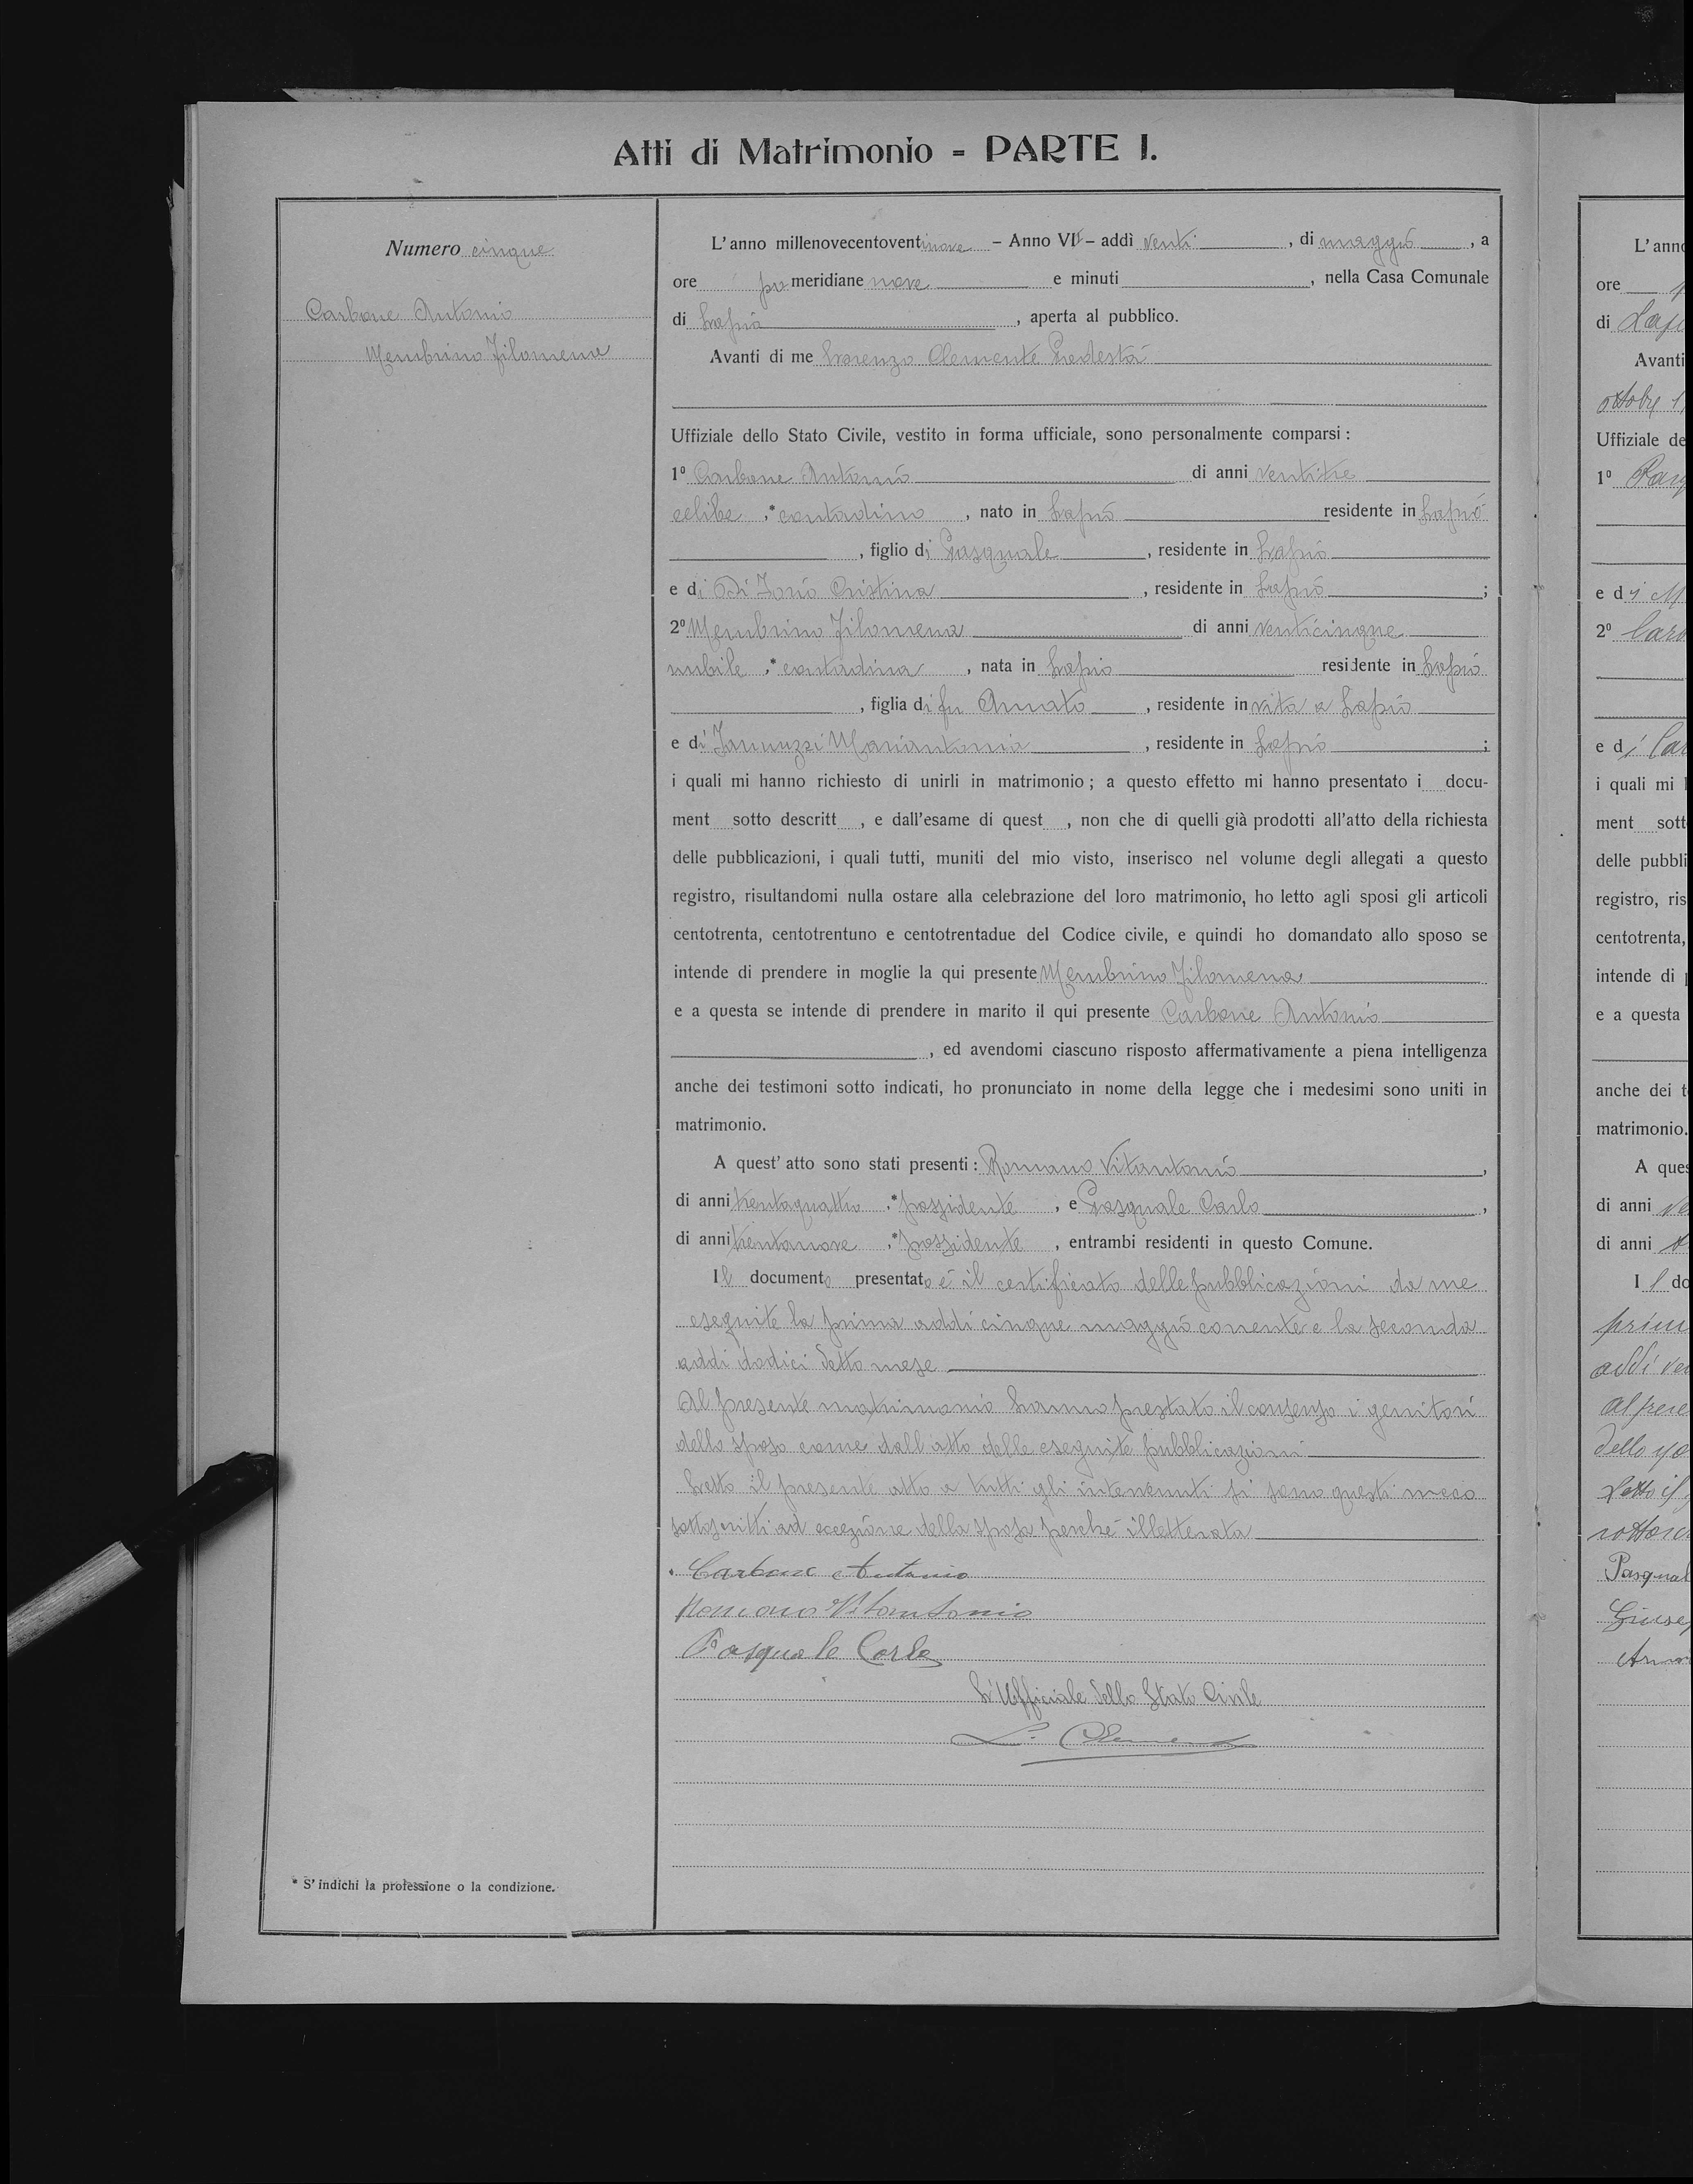 Atti di Matrimonio - PARTE I.
Numero cinque
Carbone Antonio
Membrino Filomena
L'anno millenovecentoventinove - Anno VII - addì venti, di maggio, a
ore po meridiane nove e minuti, nella Casa Comunale
di Lapio, aperta al pubblico.
Avanti di me Lorenzo Clemente Podestà
Uffiziale dello Stato Civile, vestito in forma ufficiale, sono personalmente comparsi:
1º Carbone Antonio di anni ventitre
celibe, * contadino, nato in Lapio residente in Lapio
, figlio di Pasquale, residente in Lapio
e di Di Iorio Cristina, residente in Lapio;
2º Membrino Filomena di anni venticinque
nubile, * contadina, nata in Lapio residente in Lapio
, figlia di fu Amato, residente in vita a Lapio
e di Iannuzzi Mariantonia, residente in Lapio;
i quali mi hanno richiesto di unirli in matrimonio; a questo effetto mi hanno presentato i docu-
ment sotto descritt, e dall'esame di quest, non che di quelli già prodotti all'atto della richiesta
delle pubblicazioni, i quali tutti, muniti del mio visto, inserisco nel volume degli allegati a questo
registro, risultandomi nulla ostare alla celebrazione del loro matrimonio, ho letto agli sposi gli articoli
centotrenta, centotrentuno e centotrentadue del Codice civile, e quindi ho domandato allo sposo se
intende di prendere in moglie la qui presente Membrino Filomena
e a questa se intende di prendere in marito il qui presente Carbone Antonio
, ed avendomi ciascuno risposto affermativamente a piena intelligenza
anche dei testimoni sotto indicati, ho pronunciato in nome della legge che i medesimi sono uniti in
matrimonio.
A quest'atto sono stati presenti: Romano Vitantonio,
di anni trentaquattro, * possidente, e Pasquale Carlo,
di anni trentanove, * possidente, entrambi residenti in questo Comune.
Il documento presentato è il certificato delle pubblicazioni da me
eseguite la prima addì cinque maggio corrente e la seconda
addì dodici detto mese
Al presente matrimonio hanno prestato il consenso i genitori
dello sposo come dall'atto delle eseguite pubblicazioni
Letto il presente atto a tutti gli intervenuti si sono questi meco
sottoscritti ad eccezione della sposa perché illetterata
Carbone Antonio
Romano Vitantonio
Pasquale Carlo
L'Ufficiale dello Stato Civile
L. Clemente
* S'indichi la professione o la condizione.
L'anno
ore
di Lapio
Avanti
ottobre
Uffiziale de
1º
e di
2º
e di
i quali mi
ment sott
delle pubbli
registro, ris
centotrenta,
intende di
e a questa
anche dei t
matrimonio.
A ques
di anni
di anni
Il do
prim
addì
Al pres
dello
Letto il
sottoscr
Pasqual
Giusep